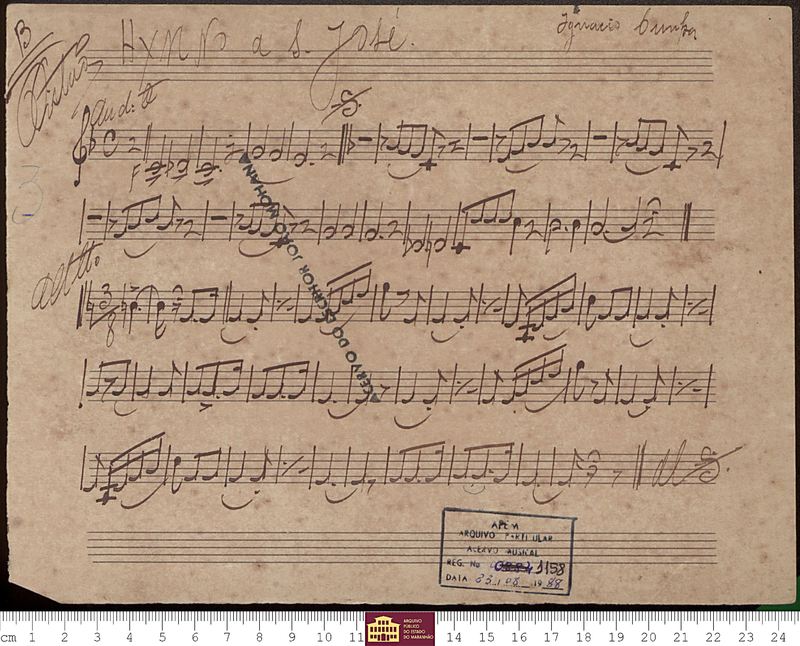 B
Hymno a S. José.
Ignacio Cunha
And.te
C
F
ACERVO DO ESCRITOR JOÃO MOHANA
3
8
al S.
APEM
ARQUIVO PARTICULAR
ACERVO MUSICAL
REG. No 1158
DATA 23 / 08 / 1988
cm 1 2 3 4 5 6 7 8 9 10 11 14 15 16 17 18 19 20 21 22 23 24
ARQUIVO
PÚBLICO
DO ESTADO
DO MARANHÃO